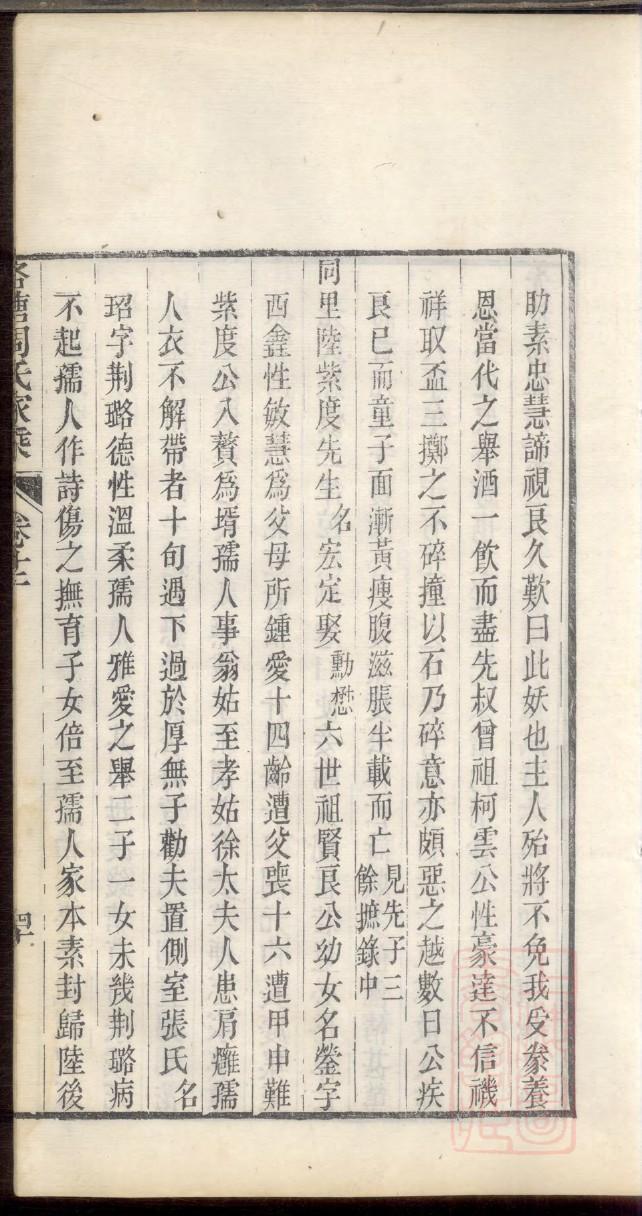 助素忠慧諦視良久歎曰此妖也主人殆將不免我受豢養
恩當代之舉酒一飲而盡先叔曾祖柯雲公性豪達不信禨
祥取盃三擲之不碎撞以石乃碎意亦頗惡之越數日公疾
良已而童子面漸黃瘦腹滋脹半載而亡見先子三餘摭錄中
同里陸紫度先生名宏定娶勳懋六世祖賢良公幼女名鎣字
西鑫性敏慧爲父母所鍾愛十四齡遭父喪十六遭甲申難
紫度公入贅爲壻孺人事翁姑至孝姑徐太夫人患肩癰孺
人衣不解帶者十旬遇下過於厚無子勸夫置側室張氏名
玿字荆璐德性溫柔孺人雅愛之舉二子一女未幾荆璐病
不起孺人作詩傷之撫育子女倍至孺人家本素封歸陸後
洛塘周氏家乘 卷十二